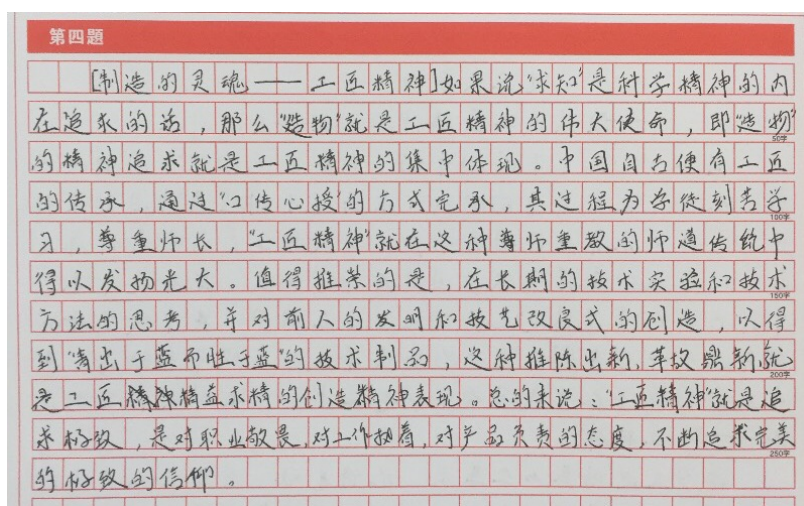 第四题
[制造的灵魂——工匠精神]如果说“求知”是科学精神的内
在追求的话，那么“造物”就是工匠精神的伟大使命，即“造物”
50字
的精神追求就是工匠精神的集中体现。中国自古便有工匠
的传承，通过“口传心授”的方式完承，其过程为学徒刻苦学
100字
习，尊重师长，“工匠精神”就在这种尊师重教的师道传统中
得以发扬光大。值得推崇的是，在长期的技术实验和技术
150字
方法的思考，并对前人的发明和技艺改良式的创造，以得
到“青出于蓝而胜于蓝”的技术制品，这种推陈出新，革故鼎新，就
200字
是工匠精神精益求精的创造精神表现。总的来说：“工匠精神”就是追
求极致，是对职业敬畏，对工作执着，对产品负责的态度，不断追求完美
250字
的极致的信仰。